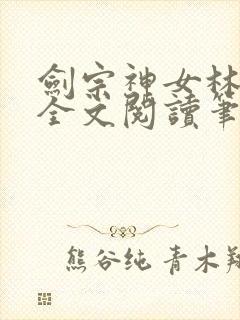 劍宗神女林
全文閱讀筆
熊谷纯 青木翔